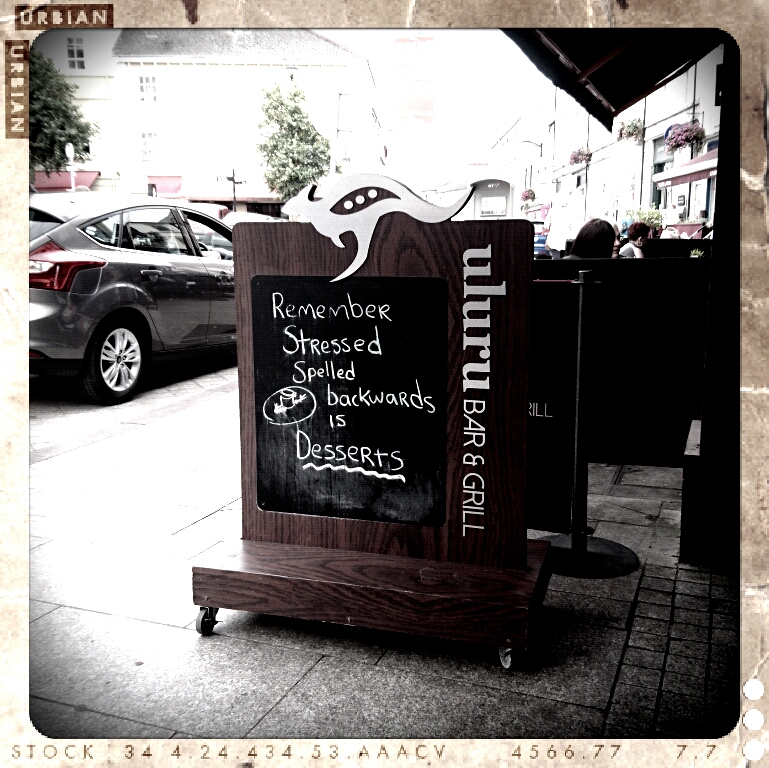 URBIAN
URBIAN
Remember
Stressed
Spelled
backwards
is
Desserts
uluru BAR & GRILL
RILL
STOCK 34 4.24.434.53.AAACV 4566.77 7,7